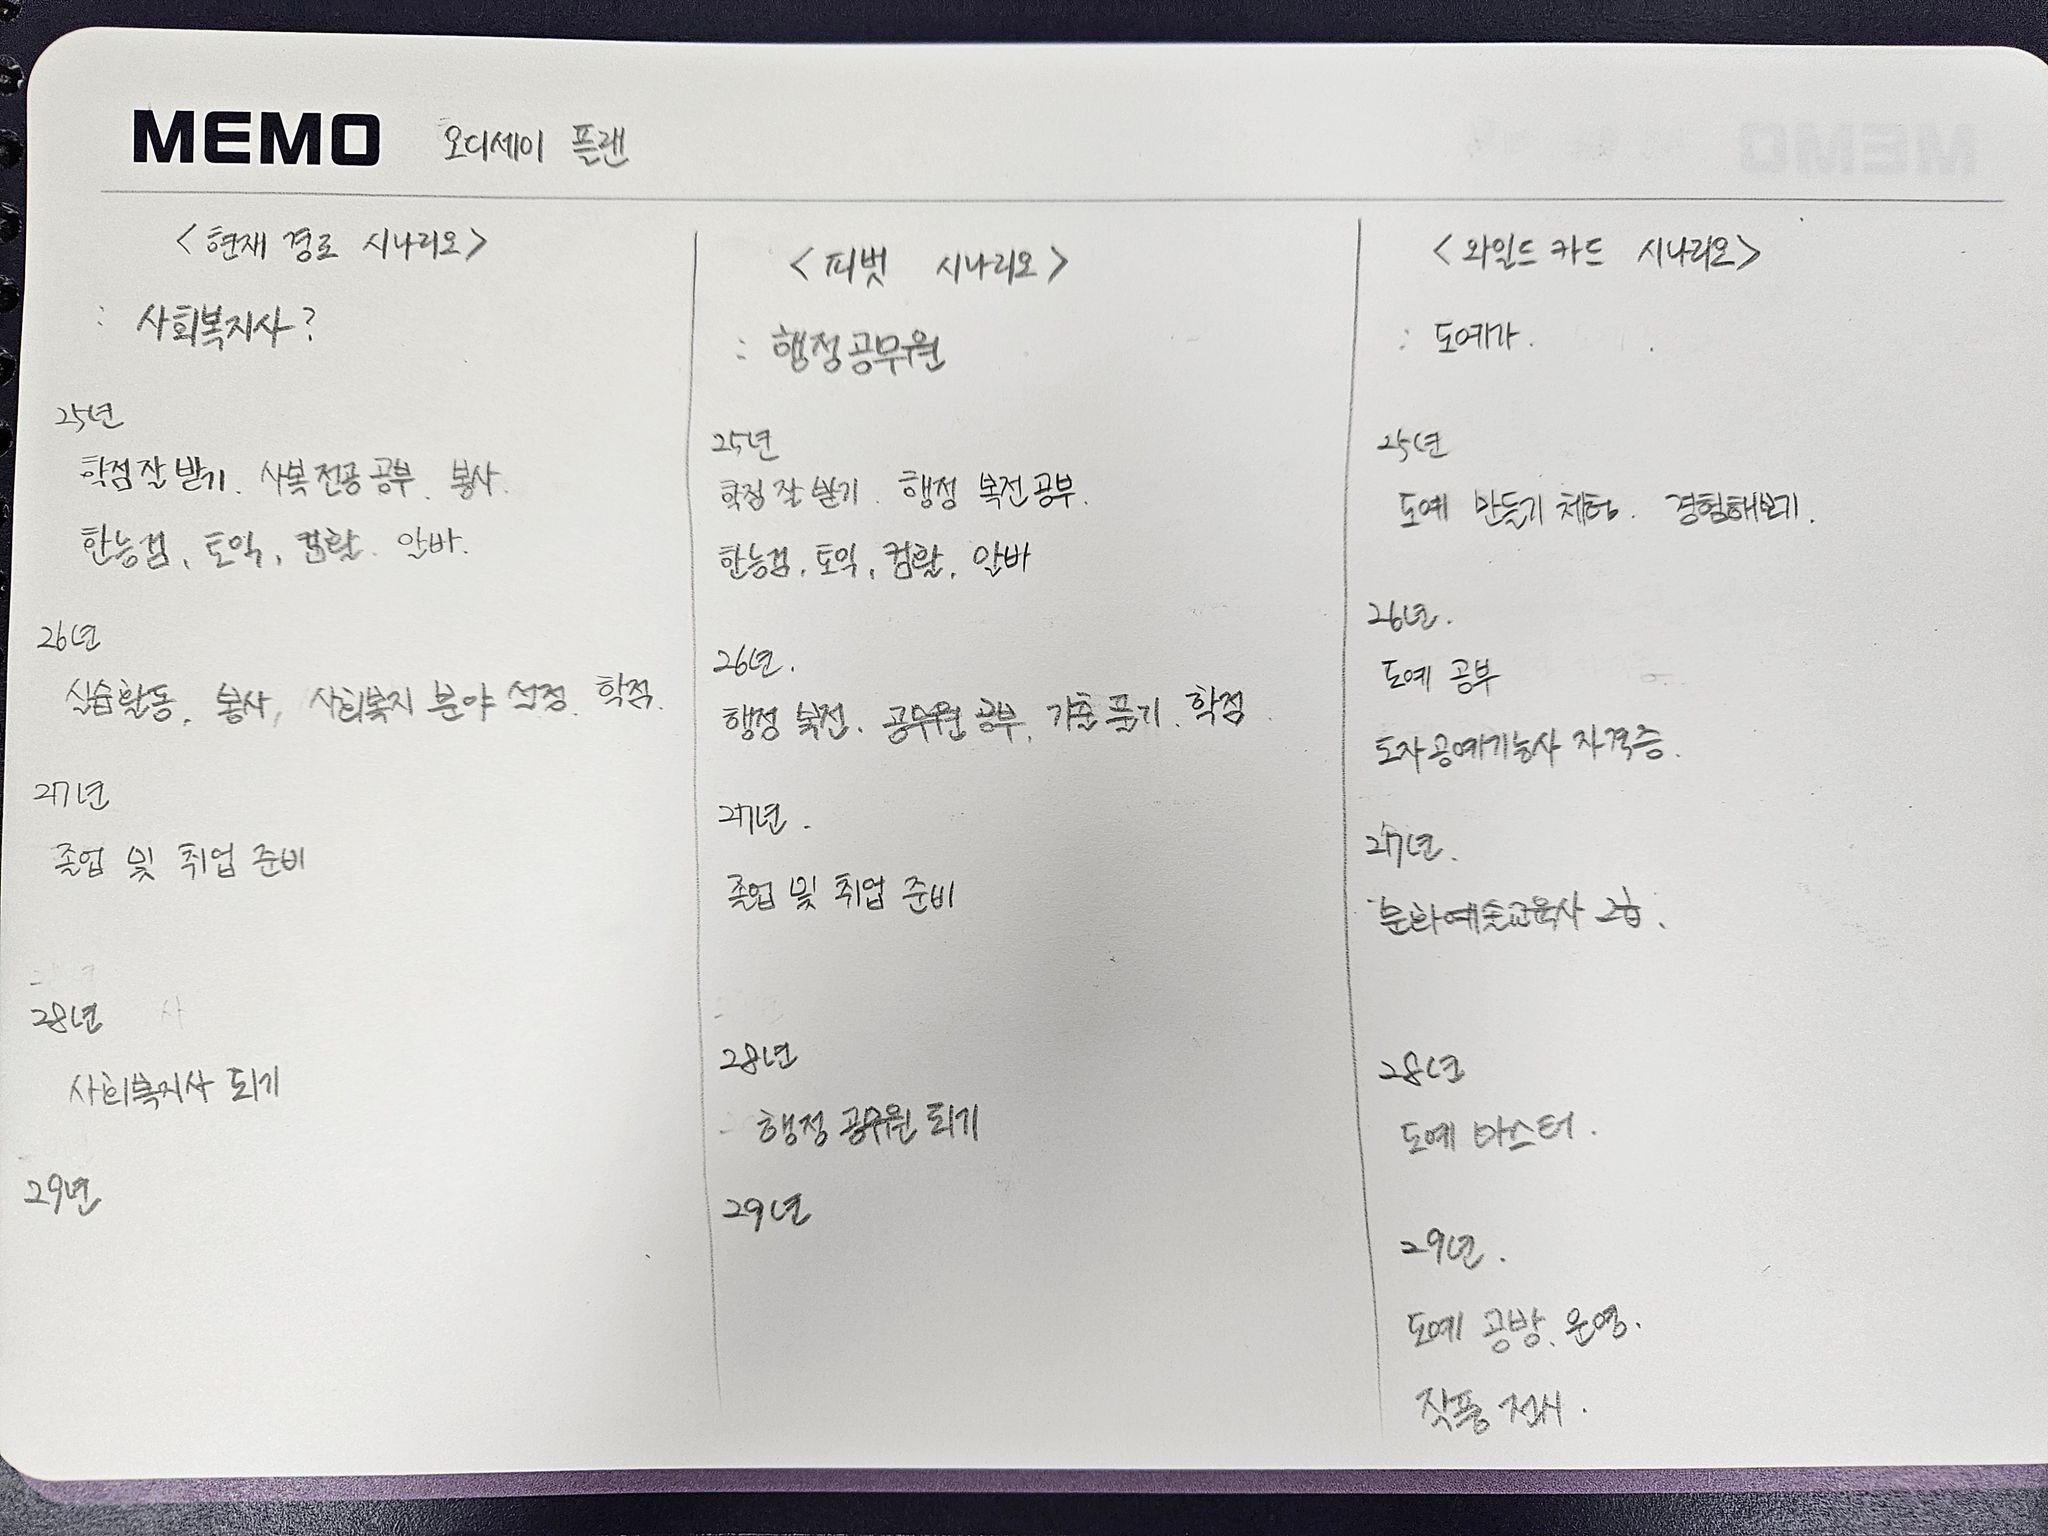 MEMO 오디세이 플랜
<현재 경로 시나리오>
: 사회복지사?
25년
학점 잘 받기. 사복 전공 공부. 봉사.
한능검, 토익, 컴활. 알바.
26년
실습활동, 봉사, 사회복지 분야 선정. 학점.
27년
졸업 및 취업 준비
28년
사회복지사 되기
29년
<피벗 시나리오>
: 행정공무원
25년
학점 잘 받기. 행정 복전 공부.
한능검, 토익, 컴활, 알바
26년.
행정 복전. 공무원 공부, 기출 풀기. 학점
27년.
졸업 및 취업 준비
28년
행정 공무원 되기
29년
<와일드 카드 시나리오>
: 도예가.
25년
도예 만들기 체험. 경험해보기.
26년.
도예 공부
도자공예기능사 자격증.
27년.
문화예술교육사 2급.
28년
도예 마스터.
29년.
도예 공방. 운영.
작품 전시.